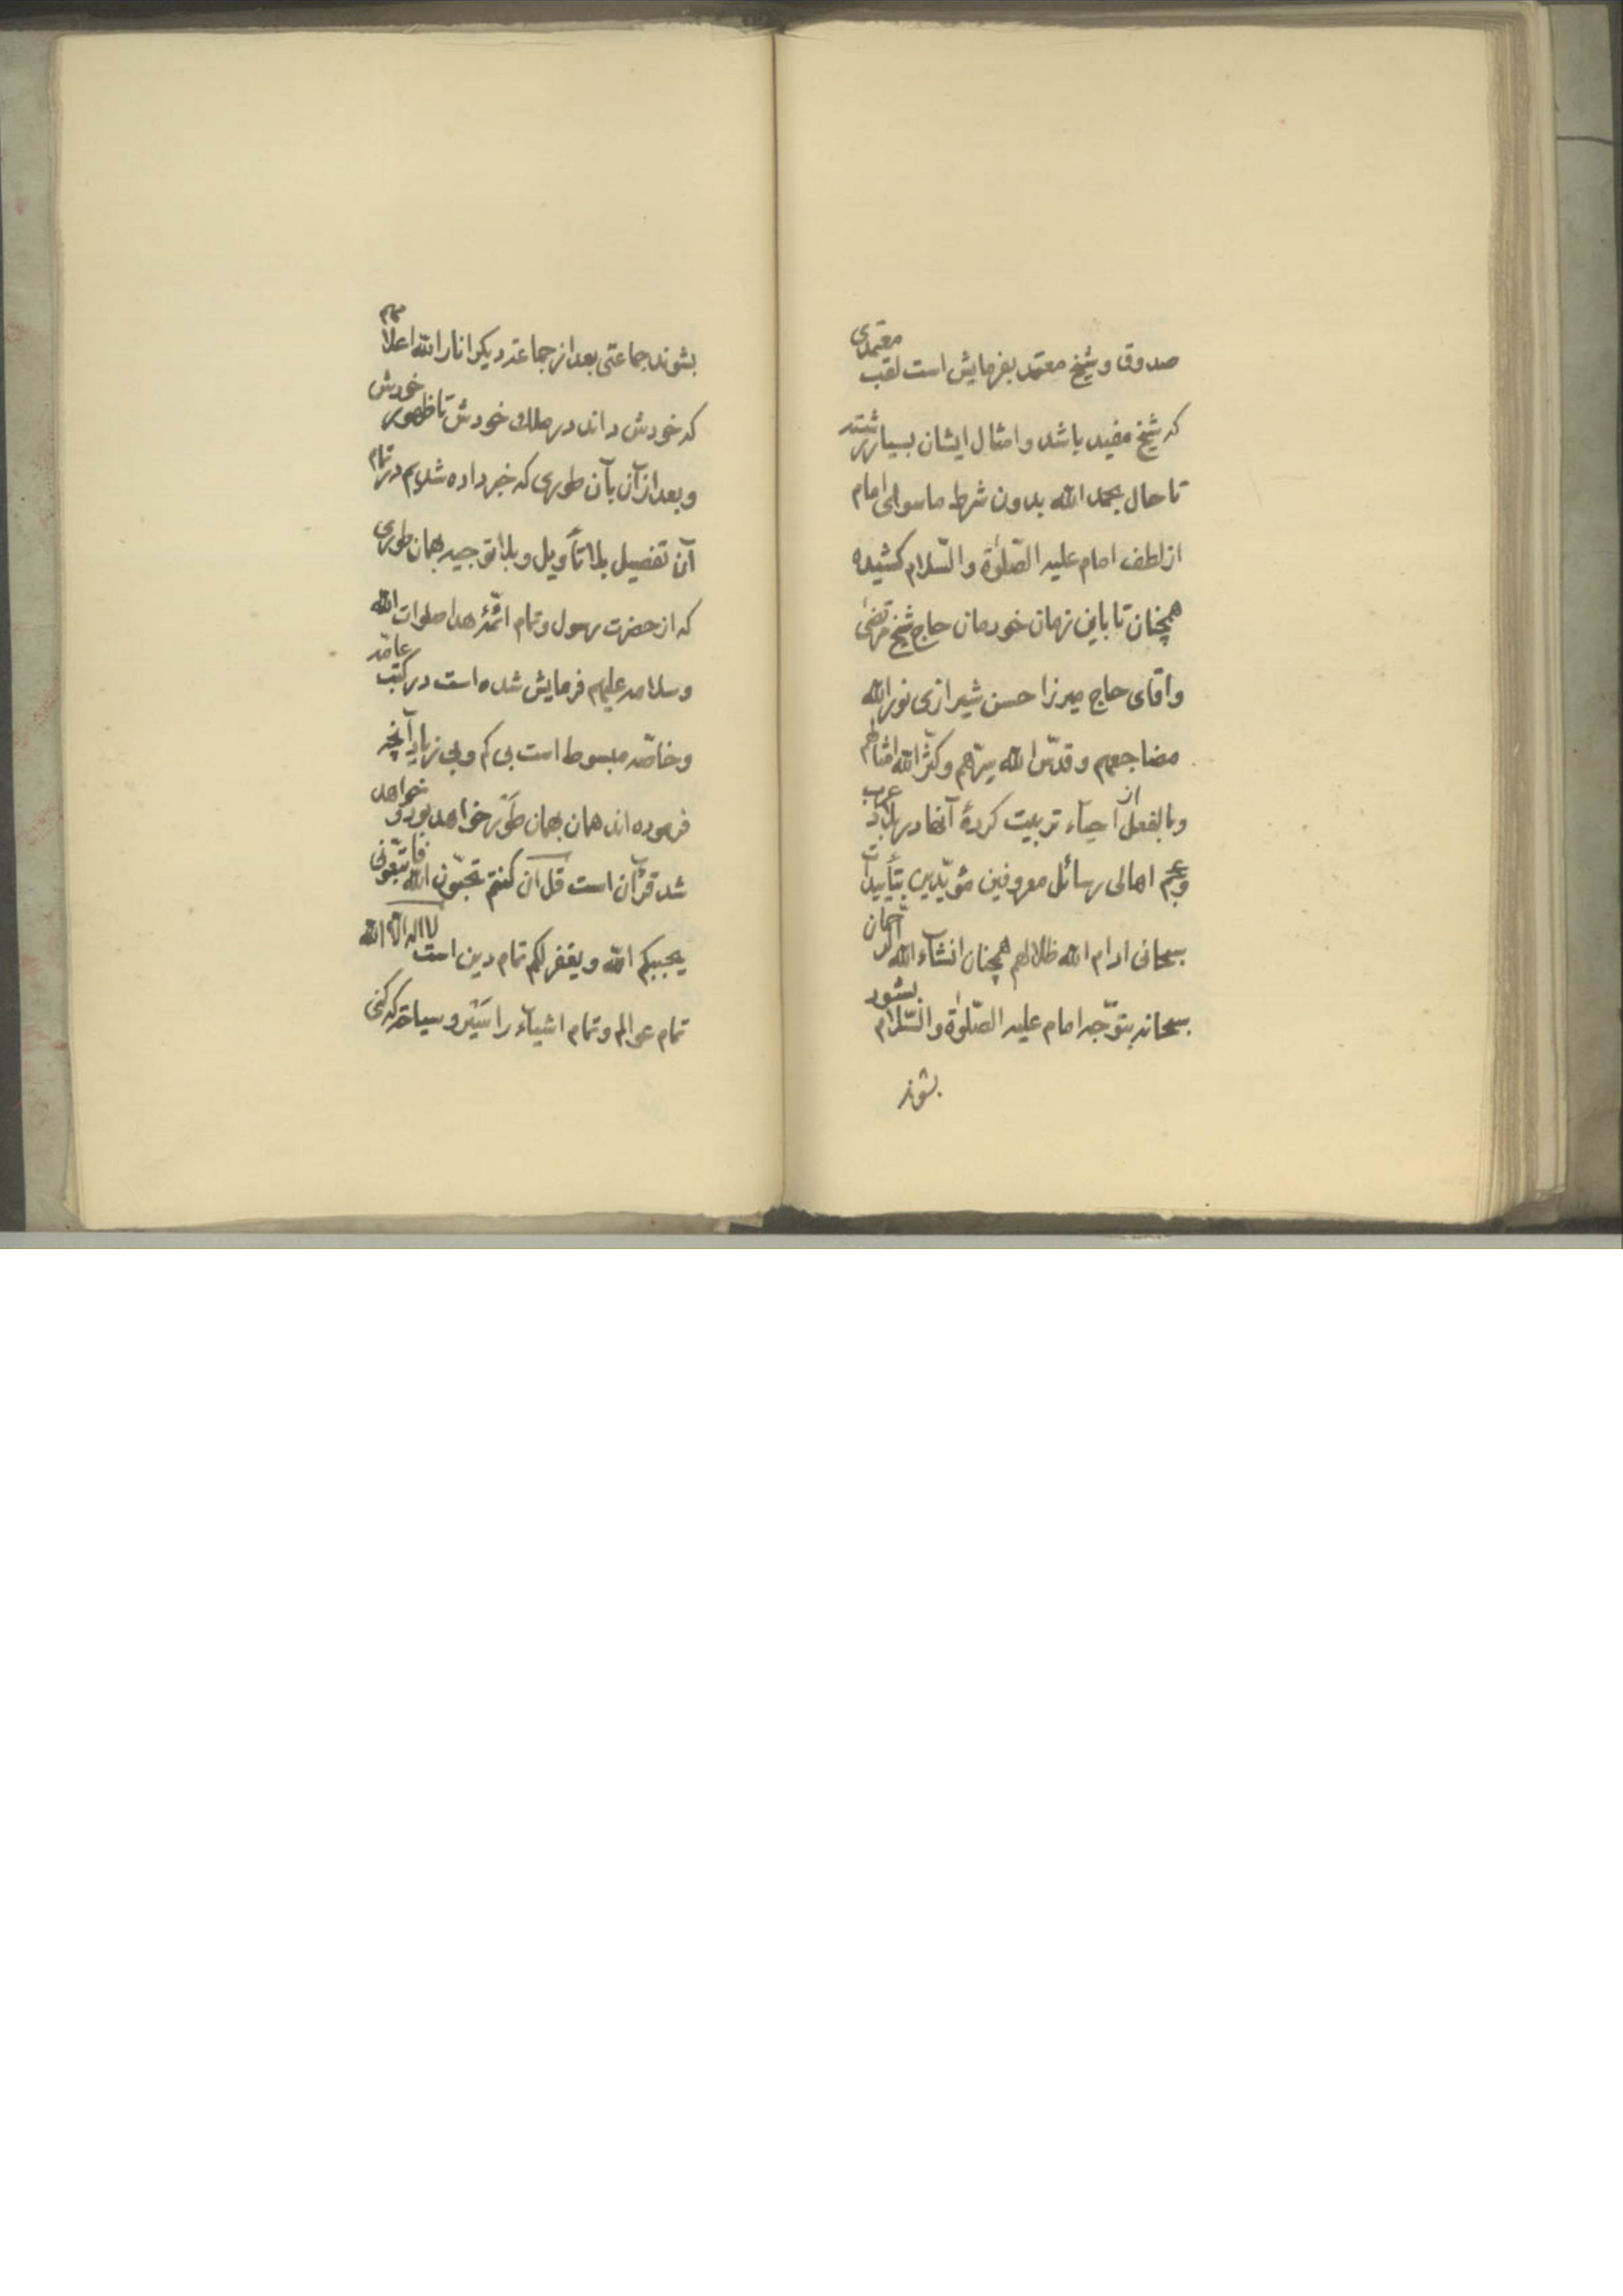 صدوق و شیخ معتمد بفرمایش است لقب معتمدی
که شیخ مفید باشد و امثال ایشان بسیار رشته
تا حال بحمد الله بدون شرط ماسوای امام
از لطف امام علیه الصّلوٰة و السّلام کشیده
همچنان تا باین زمان خودمان حاج شیخ مرتضیٰ
و اقای حاج میرزا حسن شیرازی نور الله
مضاجعهم و قدّس الله سرّهم و کثّر الله امثالهم
و بالفعل از احیاء تربیت کردهٔ آنها در بلاد عرب
و عجم اهالی رسائل معروفین مؤیّدین بتأییدات
سبحانی ادام الله ظلالهم همچنان انشآء الله
سبحانه بتوّجه امام علیه الصّلوٰة و السّلام بشود
بشوند
بشوند جماعتی بعد از جماعت دیگر انار الله اعلامهم
که خودش داند در ملک خودش تا ظهور خودش
و بعد از آن بآن طوری که خبر داده شدیم در تمام
آن تفصیل بلا تأویل و بلا توجیه بهمان طوری
که از حضرت رسول و تمام ائمّهٔ هدا صلوات الله
و سلامه علیهم فرمایش شده است در کتب عامّه
و خاصّه مبسوط است بی کم و بی زیاد آنچه
فرموده اند همان بهمان طَوْر خواهد بود و خواهد
شد قرآن است قل ان کنتم تحبّون الله فاتّبعونی
یحببکم الله و یغفر لکم تمام دین است لا اله الّا الله
تمام عوالم و تمام اشیآء را سَیْر و سیاحت که کنی